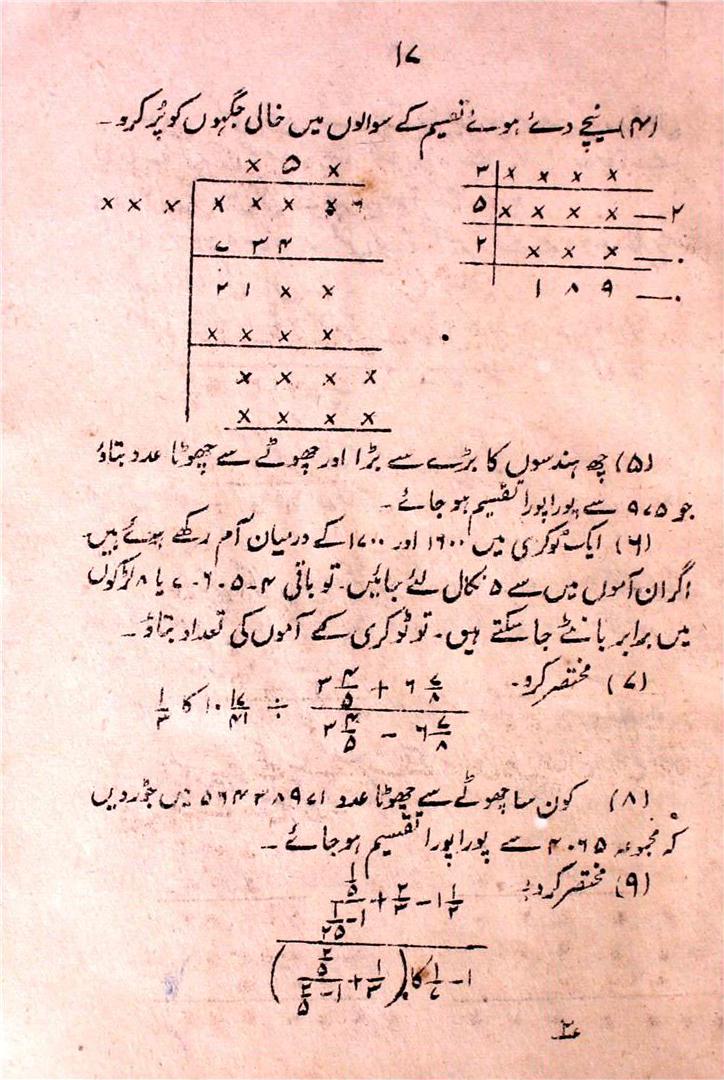 ۱۷
(۴) نیچے دئے ہوئے تقسیم کے سوالوں میں خالی جگہوں کو پُر کرو۔
۳ | × × × ×
۵ | × × × × — ۲
۲ | × × × — ۰
۱ ۸ ۹ — ۰
× ۵ ×
× × × | × × × × ۶
۷ ۳ ۴
۲ ۱ × ×
× × × ×
× × × ×
× × × ×
(۵) چھ ہندسوں کا بڑے سے بڑا اور چھوٹے سے چھوٹا عدد بتاؤ
جو ۹۷۵ سے پورا پورا تقسیم ہو جائے۔
(۶) ایک ٹوکری میں ۱۶۰۰ اور ۱۷۰۰ کے درمیان آم رکھے ہوئے ہیں۔
اگر ان آموں میں سے ۵ نکال لئے جائیں۔ تو باقی ۴۔۵۔۶۔۷ یا ۸ لڑکوں
میں برابر بانٹے جا سکتے ہیں۔ تو ٹوکری کے آموں کی تعداد بتاؤ۔
(۷) مختصر کرو۔
۳ ۴/۵ + ۶ ۷/۸
۳ ۴/۵ − ۶ ۷/۸
÷ ۱۰ ۱۷/۴۱ کا ۱/۳
(۸) کون سا چھوٹے سے چھوٹا عدد ۵۶۴۳۸۹۷۱ میں جوڑ دیں
کہ مجموعہ ۴۰۶۵ سے پورا پورا تقسیم ہو جائے۔
(۹) مختصر کرو